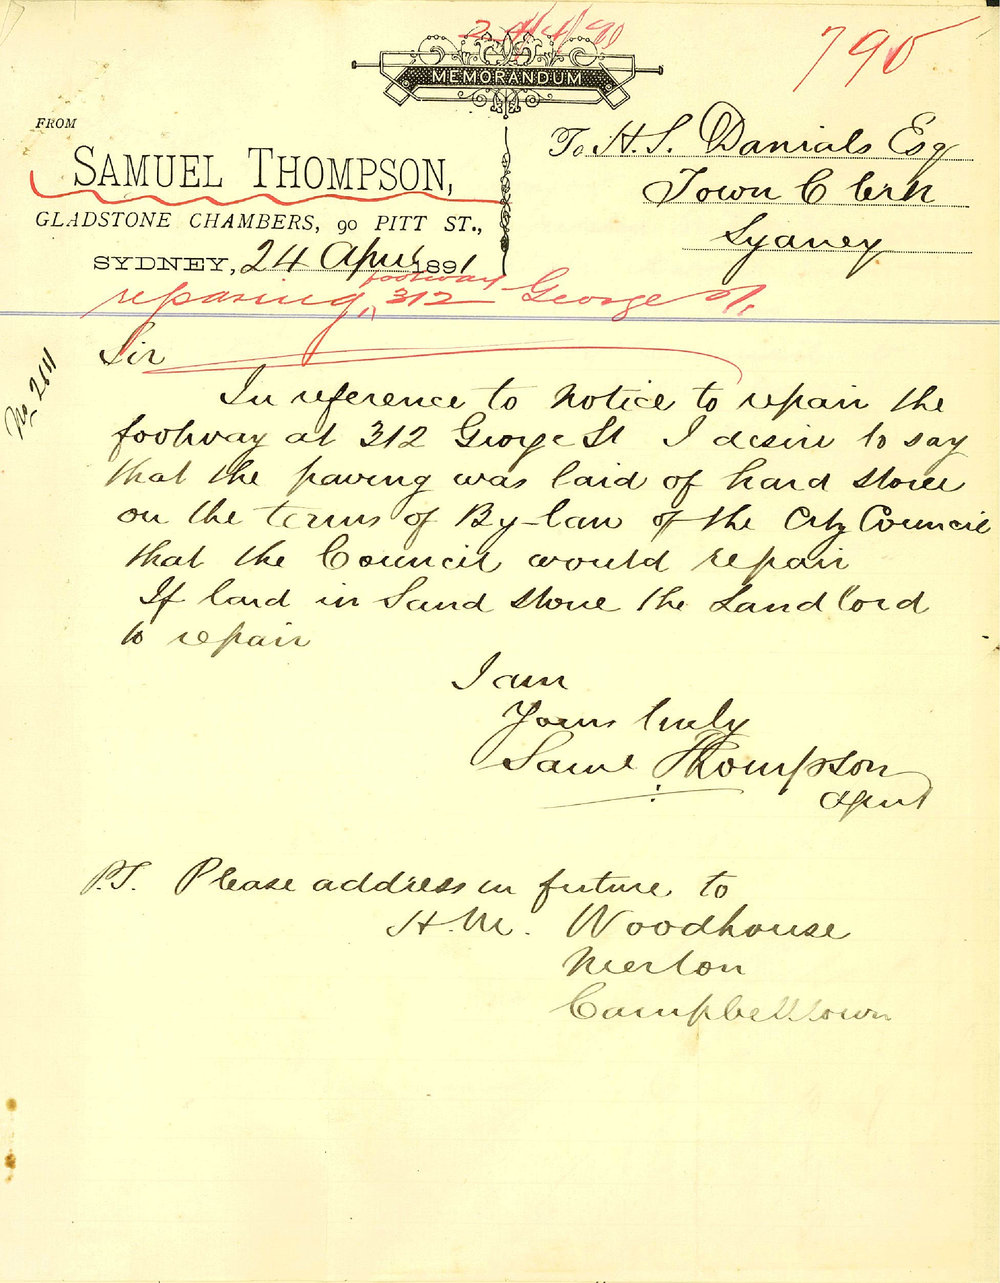 24/4/90
790
MEMORANDUM
FROM
SAMUEL THOMPSON,
GLADSTONE CHAMBERS, 90 PITT ST.,
SYDNEY, 24 April 1891
To H. S. Danials Esq
Town Clerk
Sydney
repairing footway 312 George St.
No 2611
Sir
In reference to notice to repair the
footway at 312 George St I desire to say
that the paving was laid of hard stone
on the terms of By-law of the City Council
that the Council would repair
If laid in Sand stone the Landlord
to repair
I am
Yours truly
Saml Thompson
Agent
P.S. Please address in future to
H. M. Woodhouse
Merton
Campbelltown